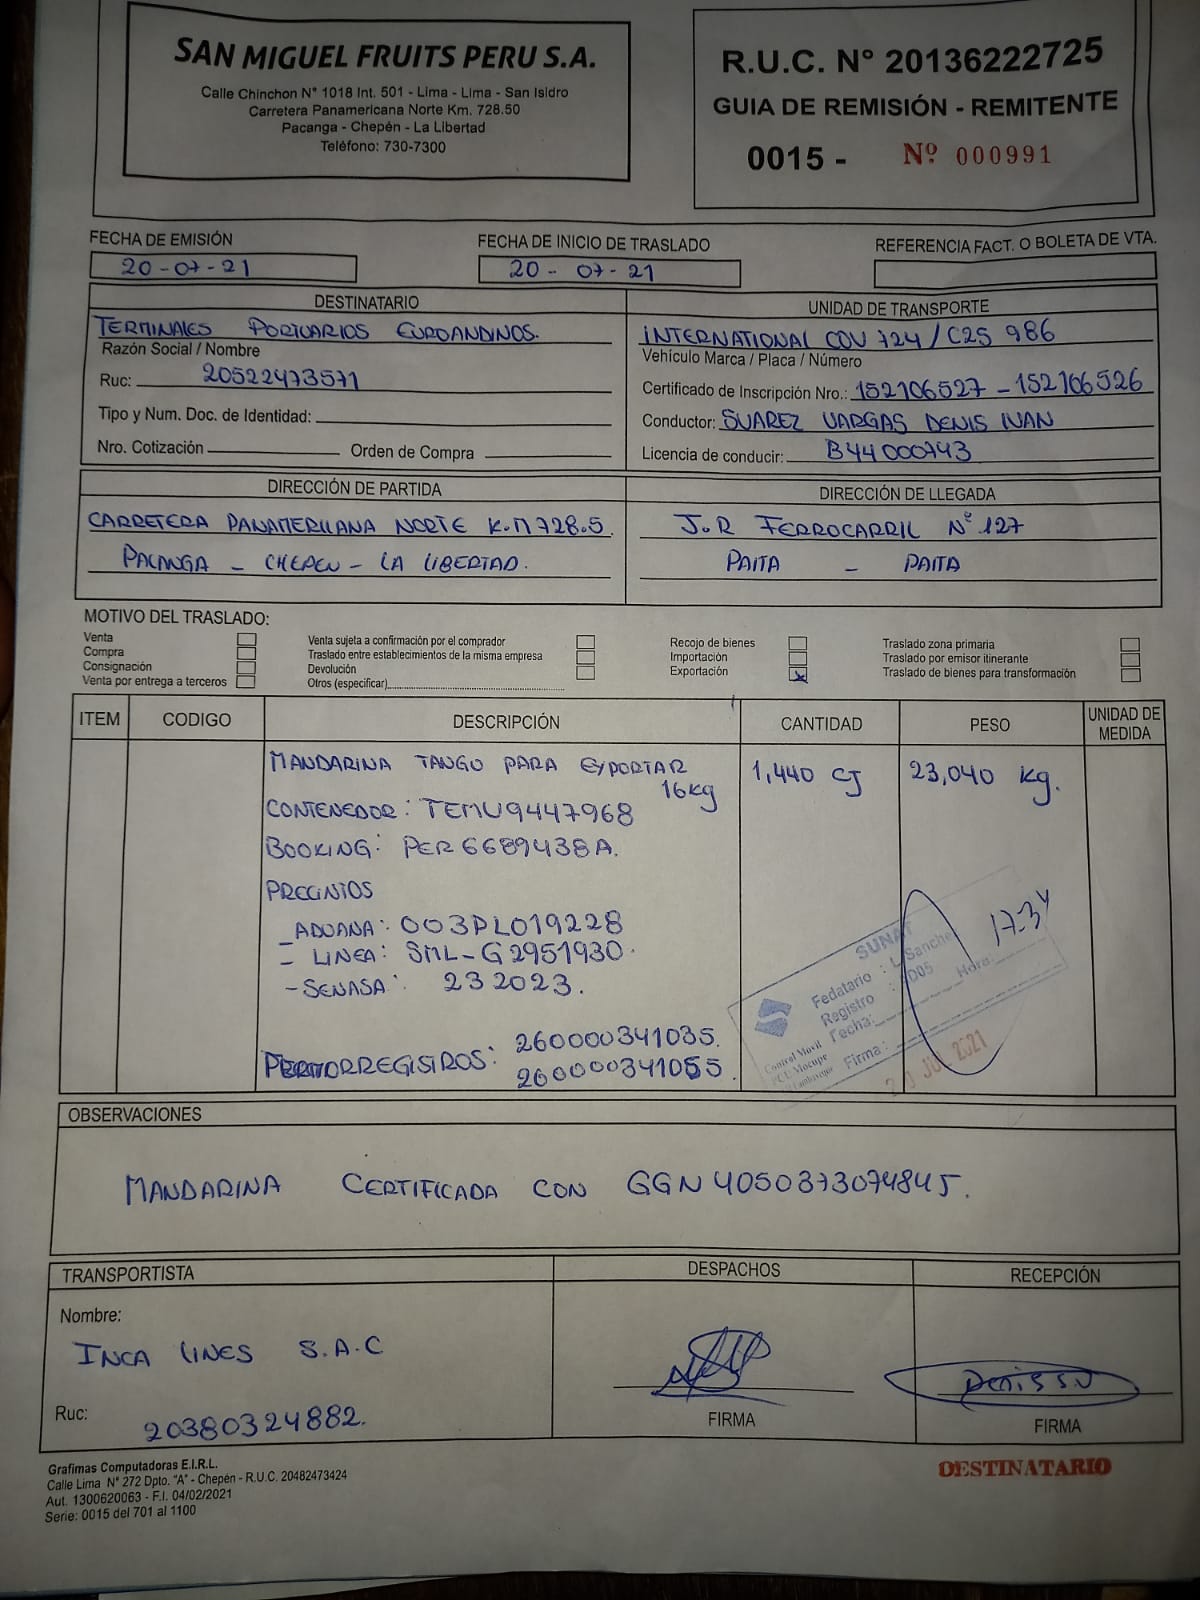 SAN MIGUEL FRUITS PERU S.A.
Calle Chinchon N° 1018 Int. 501 - Lima - Lima - San Isidro
Carretera Panamericana Norte Km. 728.50
Pacanga - Chepén - La Libertad
Teléfono: 730-7300
R.U.C. N° 20136222725
GUIA DE REMISIÓN - REMITENTE
0015 - Nº 000991
FECHA DE EMISIÓN
20-07-21
FECHA DE INICIO DE TRASLADO
20-07-21
REFERENCIA FACT. O BOLETA DE VTA.
DESTINATARIO
TERMINALES PORTUARIOS EUROANDINOS.
Razón Social / Nombre
Ruc: 20522473571
Tipo y Num. Doc. de Identidad:
Nro. Cotización Orden de Compra
UNIDAD DE TRANSPORTE
INTERNATIONAL COV 724 / C2S 986
Vehículo Marca / Placa / Número
Certificado de Inscripción Nro.: 152106527 - 152106526
Conductor: SUAREZ VARGAS DENIS IVAN
Licencia de conducir: B44000743
DIRECCIÓN DE PARTIDA
CARRETERA PANAMERICANA NORTE K.M 728.5
PACANGA - CHEPEN - LA LIBERTAD.
DIRECCIÓN DE LLEGADA
J.R FERROCARRIL N° 127
PAITA - PAITA
MOTIVO DEL TRASLADO:
Venta
Compra
Consignación
Venta por entrega a terceros
Venta sujeta a confirmación por el comprador
Traslado entre establecimientos de la misma empresa
Devolución
Otros (especificar)
Recojo de bienes
Importación
Exportación x
Traslado zona primaria
Traslado por emisor itinerante
Traslado de bienes para transformación
ITEM CODIGO DESCRIPCIÓN CANTIDAD PESO UNIDAD DE MEDIDA
MANDARINA TANGO PARA EXPORTAR 1,440 CJ 23,040 Kg.
16Kg
CONTENEDOR: TEMU9447968
BOOKING: PER6689438A.
PRECINTOS
- ADUANA: 003PL019228
- LINEA: SML-G2951930.
- SENASA: 232023.
260000341035.
TERMORREGISTROS: 260000341055.
SUNAT
Fedatario : L. Sanche
Registro :
Fecha: Hora: 17:34
Control Movil
PCU. Mocupe
Lambayeque Firma:
20 JUL 2021
OBSERVACIONES
MANDARINA CERTIFICADA CON GGN 4050373074845.
TRANSPORTISTA
Nombre:
INCA LINES S.A.C
Ruc: 20380324882.
DESPACHOS
FIRMA
RECEPCIÓN
FIRMA
Grafimas Computadoras E.I.R.L.
Calle Lima N° 272 Dpto. "A" - Chepén - R.U.C. 20482473424
Aut. 1300620063 - F.I. 04/02/2021
Serie: 0015 del 701 al 1100
DESTINATARIO